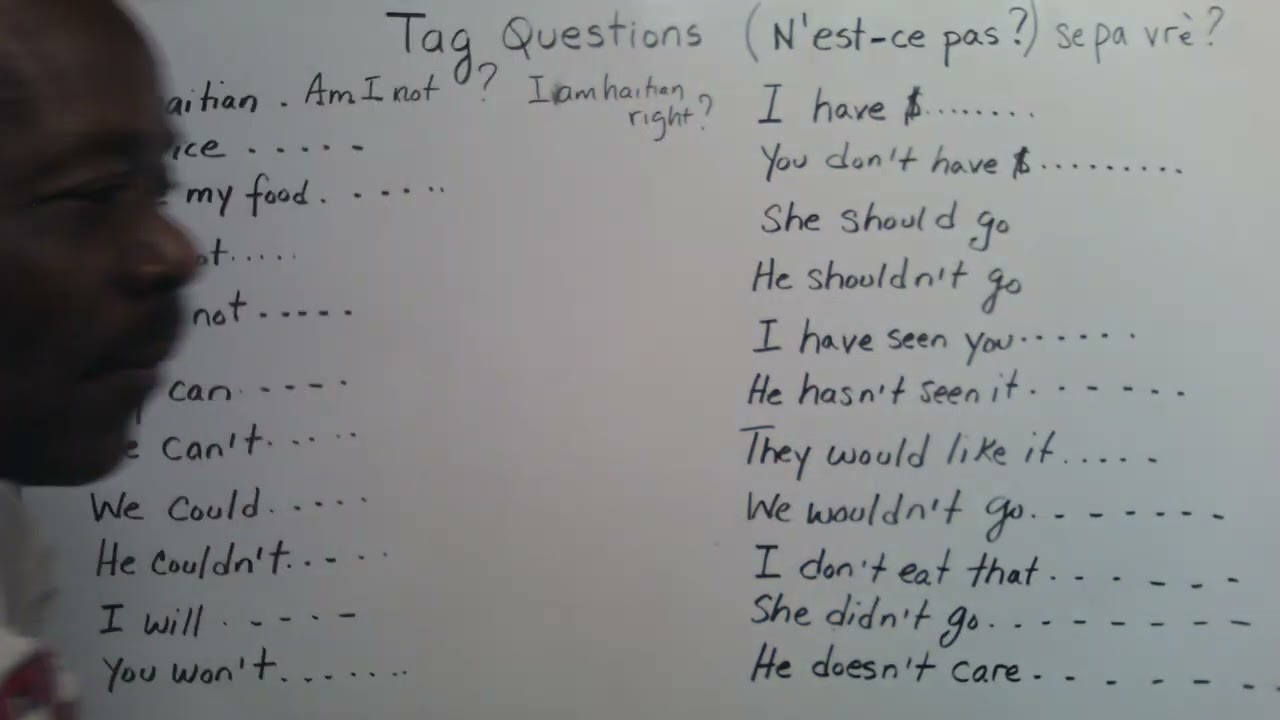 Tag Questions (N'est-ce pas?) se pa vrè?
aitian. Am I not? I am haitian right?
ice .....
my food. .....
ot.....
not .....
can. ....
e can't. ....
We could. ....
He couldn't. ....
I will .....
You won't. ......
I have $........
You don't have $.........
She should go
He shouldn't go
I have seen you......
He hasn't seen it. ......
They would like it.....
We wouldn't go. .......
I don't eat that. .....
She didn't go. ........
He doesn't care. ......